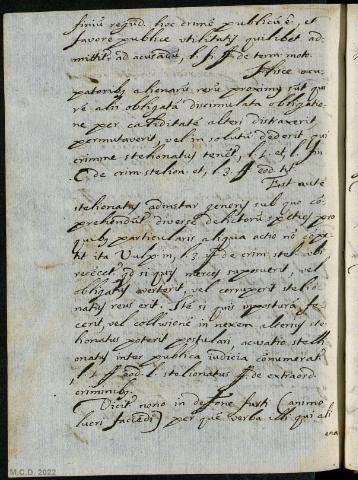 finiũ regũd. hoc crimẽ publicũ ẽ, et
favore publice utilitatis quilibet ad
mittit᷑ ad acusandũ, l. 3. ff. de term. mot.
Hisce ocu
patoribus alienarũ rerũ proximi sũt qui
rẽ alii obligatã dissimulata obligatio
ne per caliditatẽ alteri distraxerit
permutaverit, vel in solutũ dederit qui
crimine stelionatus tenẽt, l. 1. et l. fin
C. de crim. stelion. et, l. 3. ff. eod. tt.
Est autẽ
stelionatus adinstar generis sub quo cõ
prehendũt diverse delictorũ species pro
quibus particularis aliqua actio nõ cõpe
tit ita Vulp. in, l. 3. ff. de crim. stel. ubi
recẽcet qd si quis merces suposuerit, vel
obligatas averterit, vel corruperit stelio
natus reus erit. Itẽ si quis inposturã fe
cerit, vel collusionẽ in necem alterius ste
lionatus poterit postulari, acusatio steli
onatus inter publica iudicia cõnumerat᷑
l. 1. ff. eod. l. stelionatus ff. de extraord.
criminib.
Dicit᷑ nono in deffone furti (animo
lucri faciẽdi) per que verba illi qui ali
ena
M.C.D. 2022